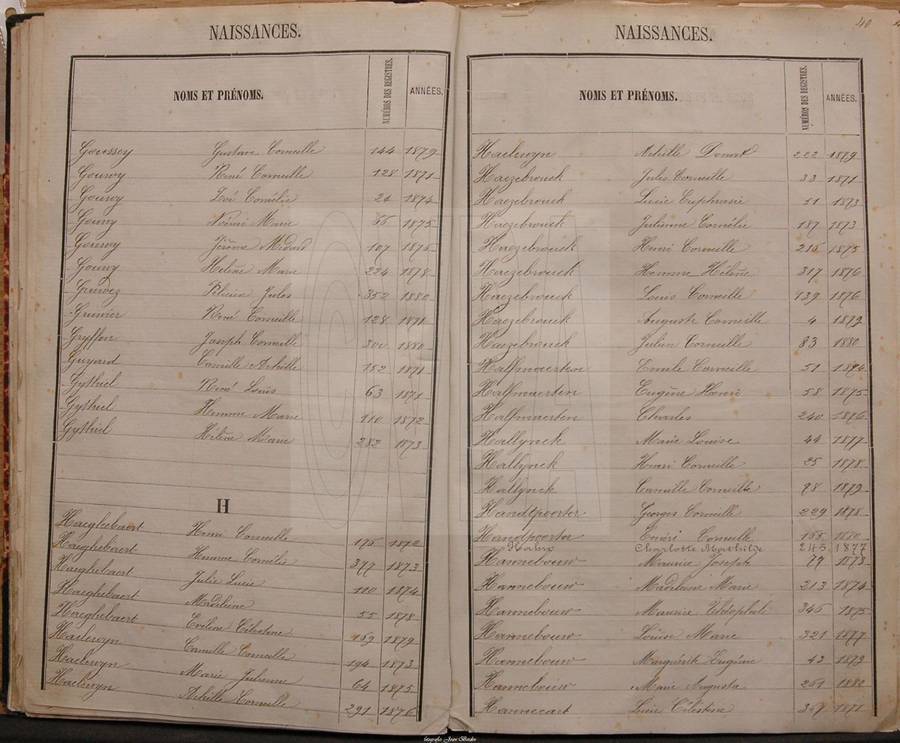 NAISSANCES.
NOMS ET PRÉNOMS. NUMÉROS DES REGISTRES ANNÉES.
Goussey Gustave Corneille 144 1879
Gouwy René Corneille 128 1871
Gouwy Zoé Cornélie 24 1874
Gouwy Noémie Marie 66 1875
Gouwy Jérôme Médard 107 1876
Gouwy Hélène Marie 224 1878
Jules 352 1880
René Corneille 128 1871
Gryffon Joseph Corneille 300 1880
Guyard Camille Achille 152 1871
Gysthiel René Louis 63 1871
Gysthiel Hemma Marie 110 1872
Gysthiel Hélène Marie 282 1873
H
Haeghebaert Henri Corneille 175 1872
Haeghebaert Hemma Cornélie 377 1873
Haeghebaert Julie Lucie 110 1874
Haeghebaert Madeleine 55 1878
Haeghebaert Evelina Célestine 1879
Haelwyn Camille Corneille 194 1873
Haelwyn Marie Julienne 64 1875
Haelwyn Achille Corneille 291 1876
40
NAISSANCES.
NOMS ET PRÉNOMS. NUMÉROS DES REGISTRES ANNÉES.
Haelwyn Achille Donat 222 1879
Haezebrouck Jules Corneille 33 1871
Haezebrouck Lucie Euphrasie 51 1873
Haezebrouck Julienne Cornélie 187 1873
Haezebrouck Henri Corneille 216 1875
Haezebrouck Hemma Hélène 317 1876
Haezebrouck Louis Corneille 139 1876
Haezebrouck Auguste Corneille 4 1879
Haezebrouck Julien Corneille 83 1880
Halfmaerten Emile Corneille 51 1874
Halfmaerten Eugène Henri 58 1875
Halfmaerten Charles 240 1876
Hallynck Marie Louise 44 1877
Hallynck Henri Corneille 25 1878
Hallynck Camille Corneille 98 1879
Handtpoorter Georges Corneille 229 1878
Handtpoorter Corneille 1880
Charlotte Mathilde 245 1877
Hannebouw Maurice Joseph 79 1873
Hannebouw Madeleine Marie 213 1874
Hannebouw Maurice Théophile 346 1875
Hannebouw Louise Marie 321 1877
Hannebouw Marguerite Eugénie 43 1879
Hannebouw Marie Augusta 261 1880
Hannecart Lucie Célestine 369 1871
fotografie Joan Boudens